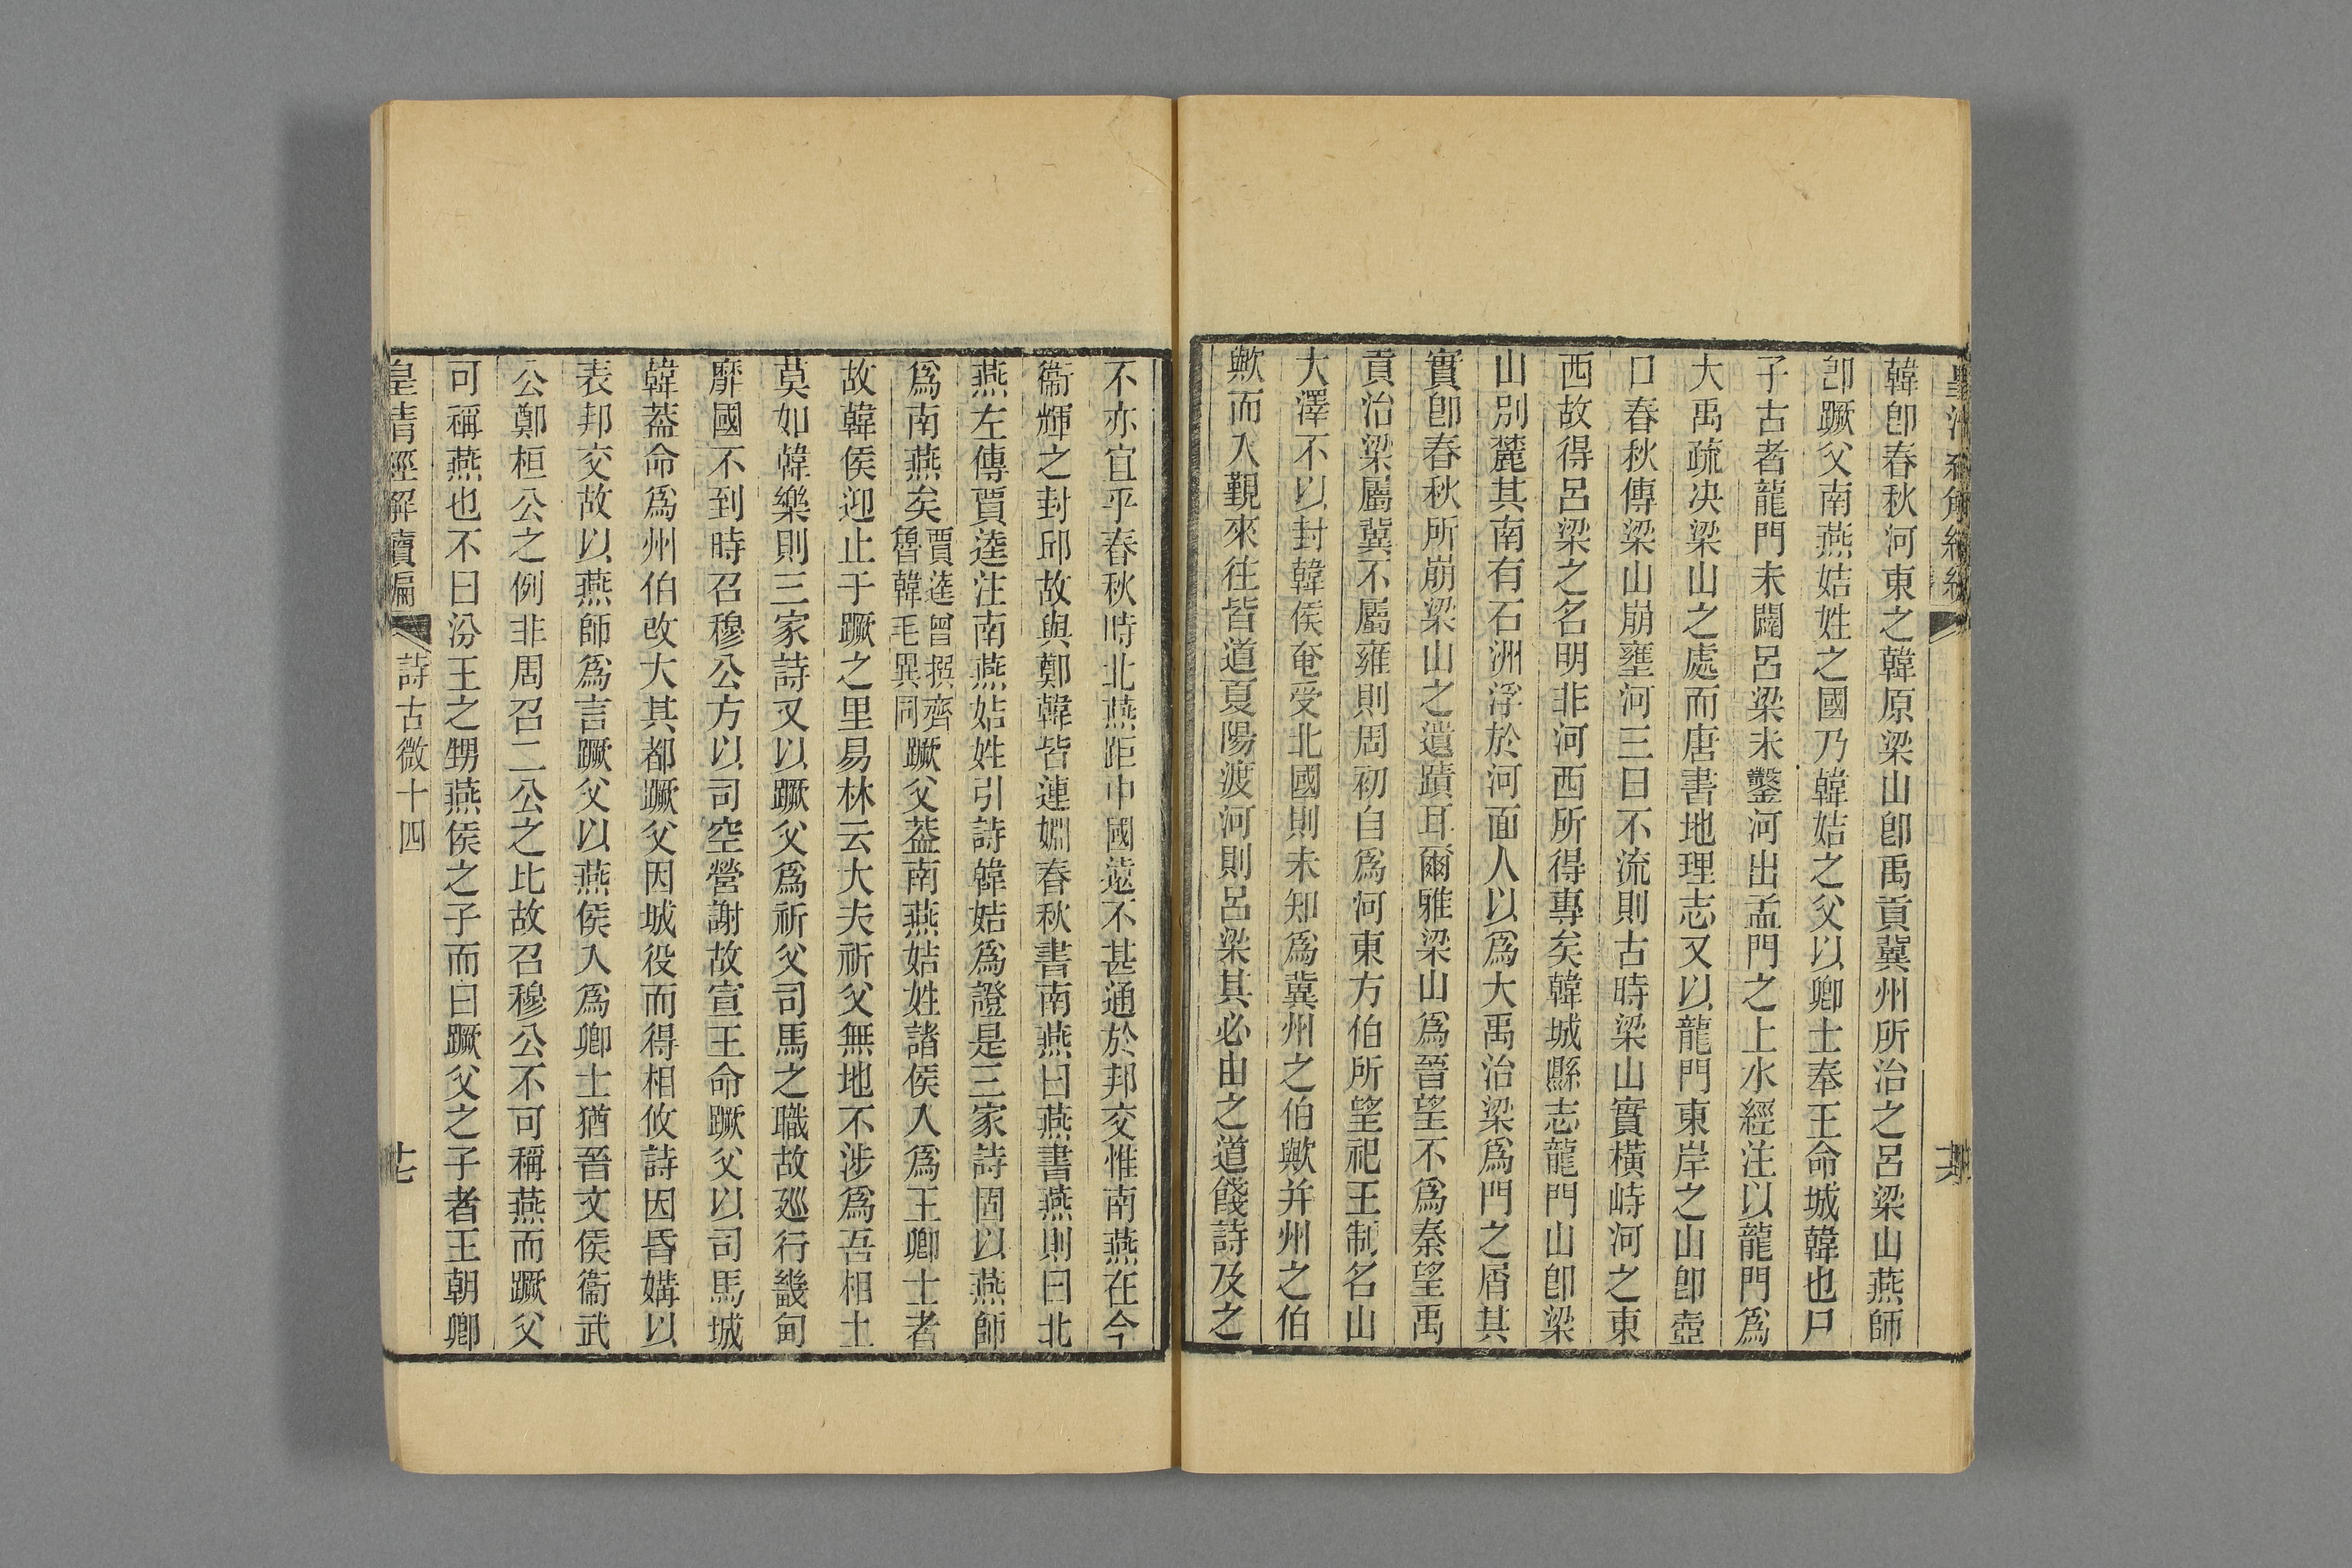 韓卽春秋河東之韓原梁山卽禹貢冀州所治之呂梁山燕師
卽蹶父南燕姞姓之國乃韓姞之父以卿士奉王命城韓也尸
子古者龍門未闢呂梁未鑿河出孟門之上水經注以龍門爲
大禹疏決梁山之處而唐書地理志又以龍門東岸之山卽壺
口春秋傳梁山崩壅河三日不流則古時梁山實橫峙河之東
西故得呂梁之名明非河西所得專矣韓城縣志龍門山卽梁
山別麓其南有石洲浮於河面人以爲大禹治梁爲門之屑其
實卽春秋所崩梁山之遺蹟耳爾雅梁山爲晉望不爲秦望禹
貢治梁屬冀不屬雍則周初自爲河東方伯所望祀王制名山
大澤不以封韓侯奄受北國則未知爲冀州之伯歟并州之伯
歟而入覲來往皆道夏陽渡河則呂梁其必由之道餞詩及之
不亦宜乎春秋時北燕距中國遠不甚通於邦交惟南燕在今
衞輝之封邱故與鄭韓皆連婣春秋書南燕曰燕書燕則曰北
燕左傳賈逵注南燕姞姓引詩韓姞爲證是三家詩固以燕師
爲南燕矣賈逵曾撰齊魯韓毛異同蹶父葢南燕姞姓諸侯入爲王卿士者
故韓侯迎止于蹶之里易林云大夫祈父無地不涉爲吾相土
莫如韓樂則三家詩又以蹶父爲祈父司馬之職故廵行畿甸
靡國不到時召穆公方以司空營謝故宣王命蹶父以司馬城
韓葢命爲州伯改大其都蹶父因城役而得相攸詩因昏媾以
表邦交故以燕師爲言蹶父以燕侯入爲卿士猶晉文侯衞武
公鄭桓公之例非周召二公之比故召穆公不可稱燕而蹶父
可稱燕也不曰汾王之甥燕侯之子而曰蹶父之子者王朝卿
皇淸經解續編 詩古微十四 十七